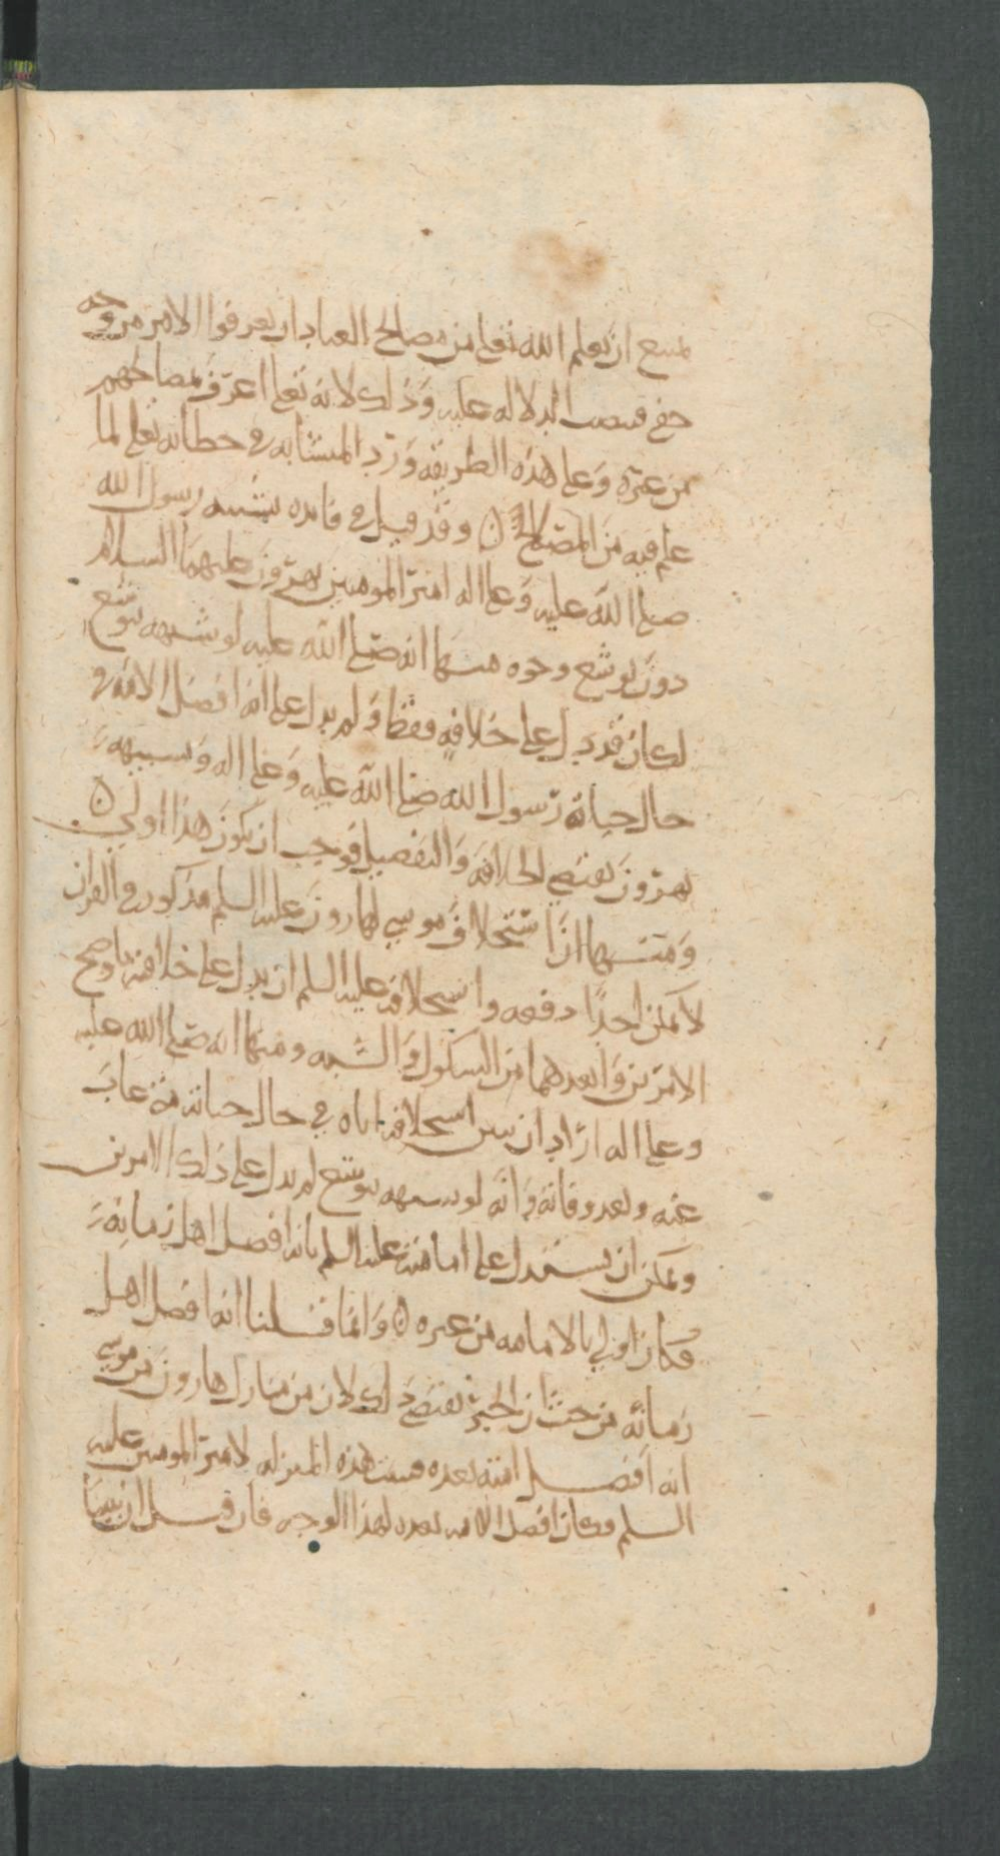 يمنع ان يعلم الله تعلى من مصالح العباد ان يعرفوا الامر من وجه
خفي فينصب الدلاله عليه وذلك لانه تعلى اعرف بمصالحهم
من غيره وعلى هذه الطريقه ورد المتشابه في خطابه تعلى لما
علم فيه من المصالح ن وقد قيل في فايده تشبيه رسول الله
صلى الله عليه وعلى اله امير المومنين بهرون عليهما السلام
دون يوشع وجوه منها انه صلى الله عليه لو شبهه بيوشع
لكان قد دل على خلافته فقط ولم يدل على انه افضل الامه في
حال حياة رسول الله صلى الله عليه وعلى اله وتشبيهه
بهرون يقتضي الخلافه والتفضيل فوجب ان يكون هذا اولى ن
ومنها ان استخلاف موسى لهارون عليه السلم مذكور في القران
لا يمكن احدا دفعه واستخلافه عليه السلم ان يدل على خلافته باوضح
الامرين وابعدهما من الشكوك والشبه ومنها انه صلى الله عليه
وعلى اله اراد ان يبين استخلافه اياه في حال حياته متى غاب
عنه وبعد وفاته وانه لو شبهه بيوشع لم يدل على ذلك الامرين
ويمكن ان يستدل على امامته عليه السلم بانه افضل اهل زمانه
فكان اولى بالامامه من غيره ن وانما قلنا انه افضل اهل
زمانه من حيث ان الخبر يقتضي ذلك لان من منازل هارون من موسى
انه افضل امته بعده فيثبت هذه المنزله لامير المومنين عليه
السلم فكان افضل الامه بعده لهذا الوجه فان قيل ان